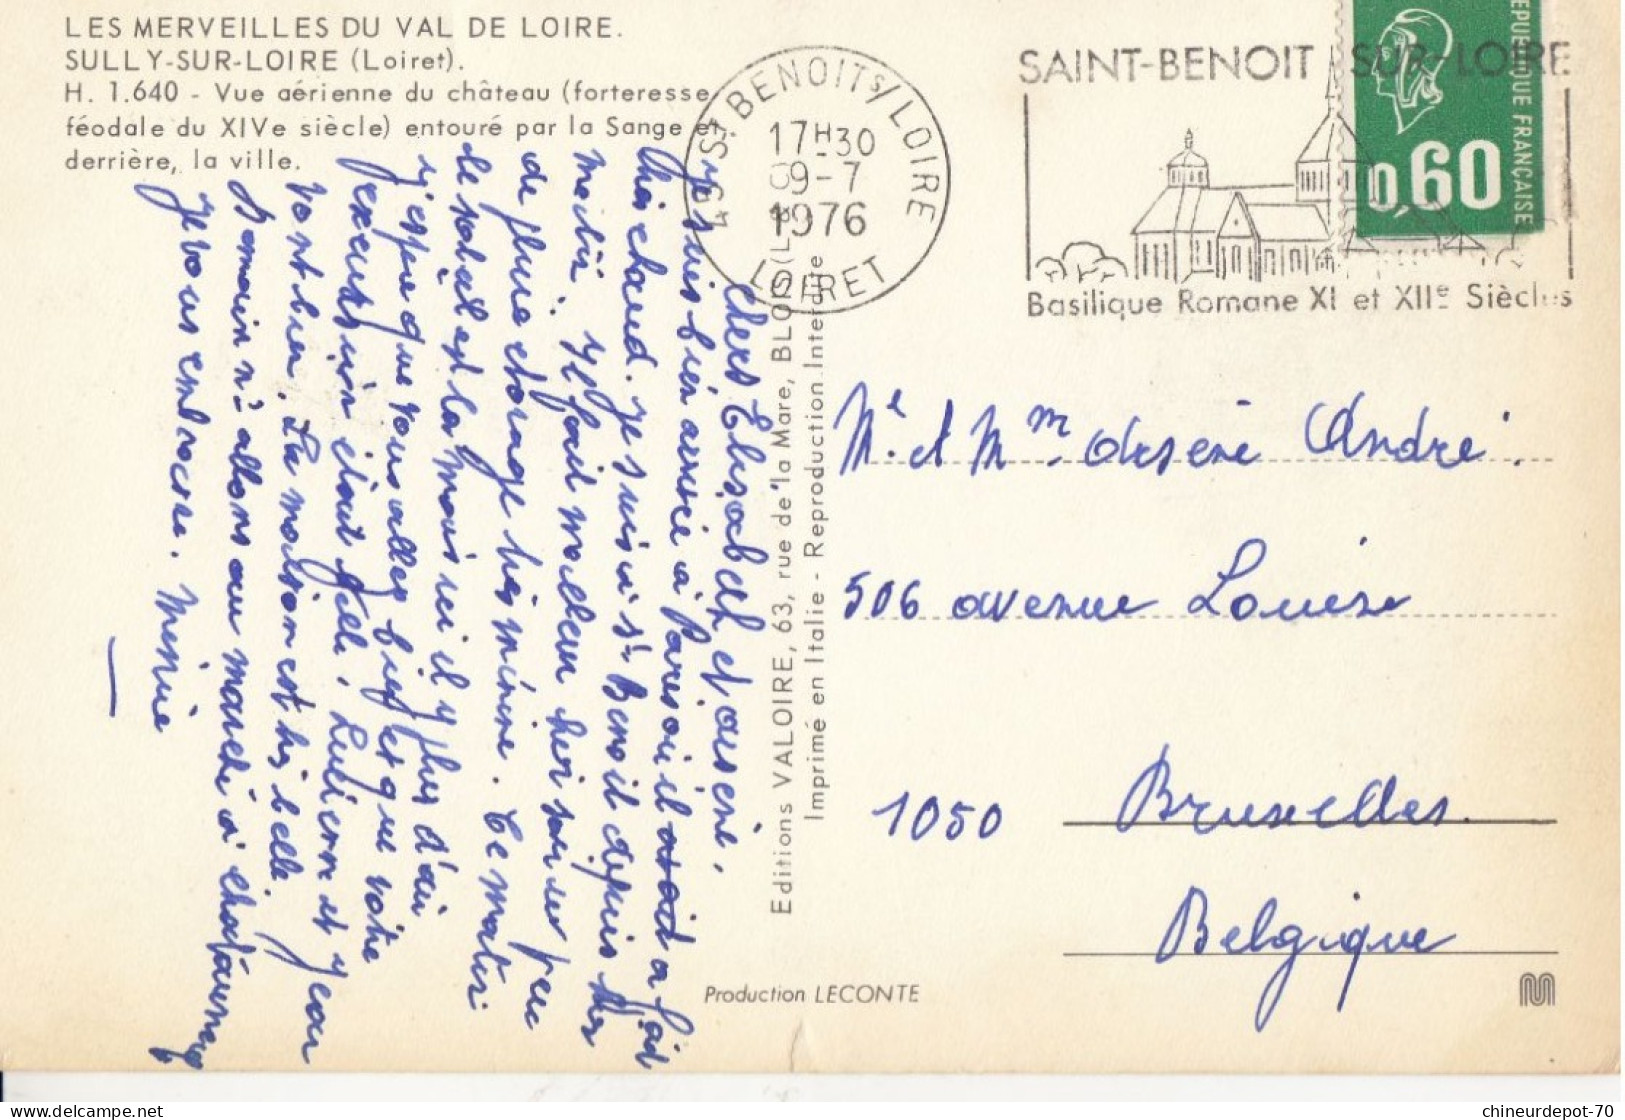 LES MERVEILLES DU VAL DE LOIRE.
SULLY-SUR-LOIRE (Loiret).
H. 1.640 - Vue aérienne du château (forteresse
féodale du XIVe siècle) entouré par la Sange et,
derrière, la ville.
45 ST BENOIT S/LOIRE
17H30
9-7
1976
LOIRET
SAINT-BENOIT SUR-LOIRE
Basilique Romane XI et XIIe Siècles
REPUBLIQUE FRANÇAISE
0,60
Chers Elisabeth et arsène,
je suis bien arrivé à Paris où il avait a fait
très chaud. je suis à St Benoit depuis hier
matin. il fait meilleur hier soir un peu
de pluie et orage très minime. Ce matin
le soleil est là mais ici il y plus d'air
j'espère que vous allez bien et que votre
excursion était belle. Lucienne et Jean
vont bien. La maison est très belle.
Demain n/s allons au marché à Chateauneuf
je vous embrasse. Mémé
Editions VALOIRE, 63, rue de la Mare, BLOIS (L.
Imprimé en Italie - Reproduction Interdite
Mr et Mme arsène André.
506 avenue Louise
1050 Bruxelles.
Belgique
Production LECONTE
chineurdepot-70